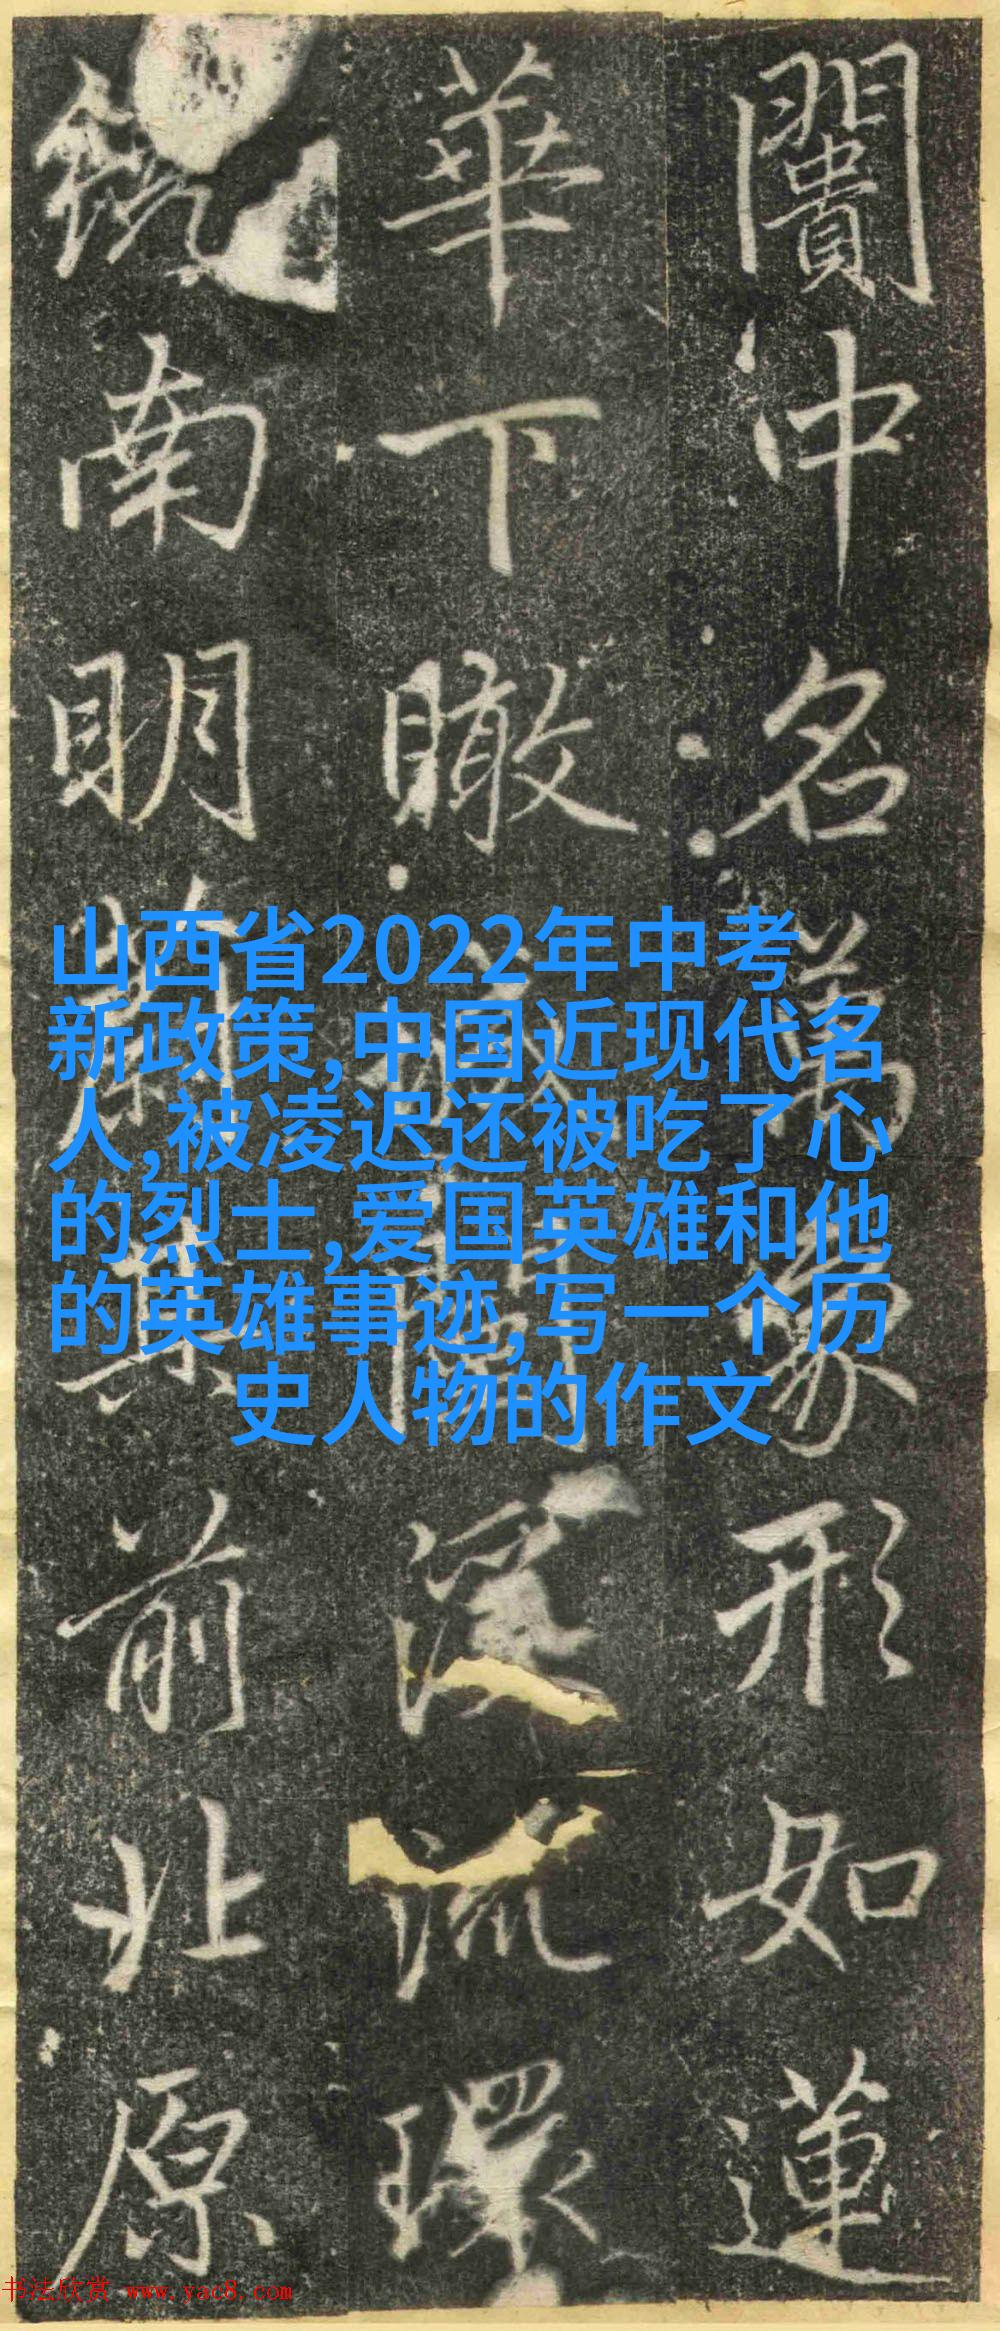 山西省2022年中考
新政策,中国近现代名
人,被凌迟还被吃了心
的烈士,爱国英雄和他
的英雄事迹,写一个历
史人物的作文
闠中名萬象形如蓮
華下瞰深流環
南明前北原
书法欣赏 www.yac8.com